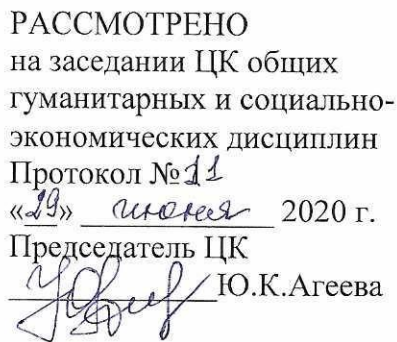 РАССМОТРЕНО
на заседании ЦК общих
гуманитарных и социально-
экономических дисциплин
Протокол №11
«29» июня 2020 г.
Председатель ЦК
Ю.К.Агеева